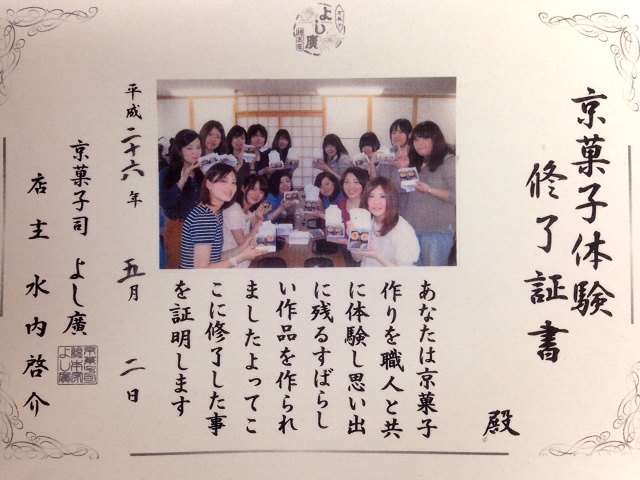 よし廣
京菓子体験
修了証書
殿
あなたは京菓子
作りを職人と共
に体験し思い出
に残るすばらし
い作品を作られ
ましたよってこ
こに修了した事
を証明します
平成二十六年五月二日
京菓子司 よし廣
店主 水内啓介